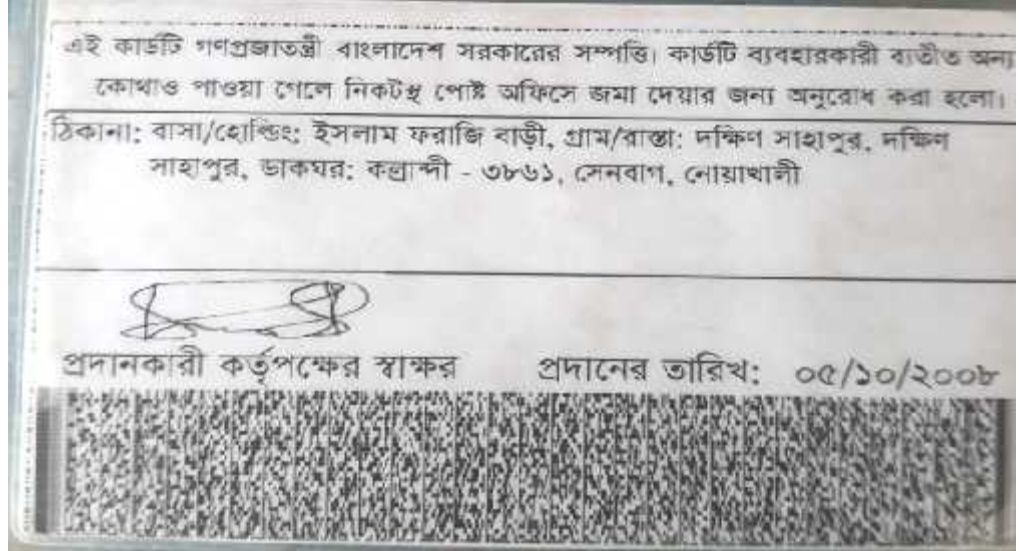 এই কার্ডটি গণপ্রজাতন্ত্রী বাংলাদেশ সরকারের সম্পত্তি। কার্ডটি ব্যবহারকারী ব্যতীত অন্য
কোথাও পাওয়া গেলে নিকটস্থ পোষ্ট অফিসে জমা দেয়ার জন্য অনুরোধ করা হলো।
ঠিকানা: বাসা/হোল্ডিং: ইসলাম ফরাজি বাড়ী, গ্রাম/রাস্তা: দক্ষিণ সাহাপুর, দক্ষিণ
সাহাপুর, ডাকঘর: কল্যান্দী - ৩৮৬১, সেনবাগ, নোয়াখালী
প্রদানকারী কর্তৃপক্ষের স্বাক্ষর প্রদানের তারিখ: ০৫/১০/২০০৮